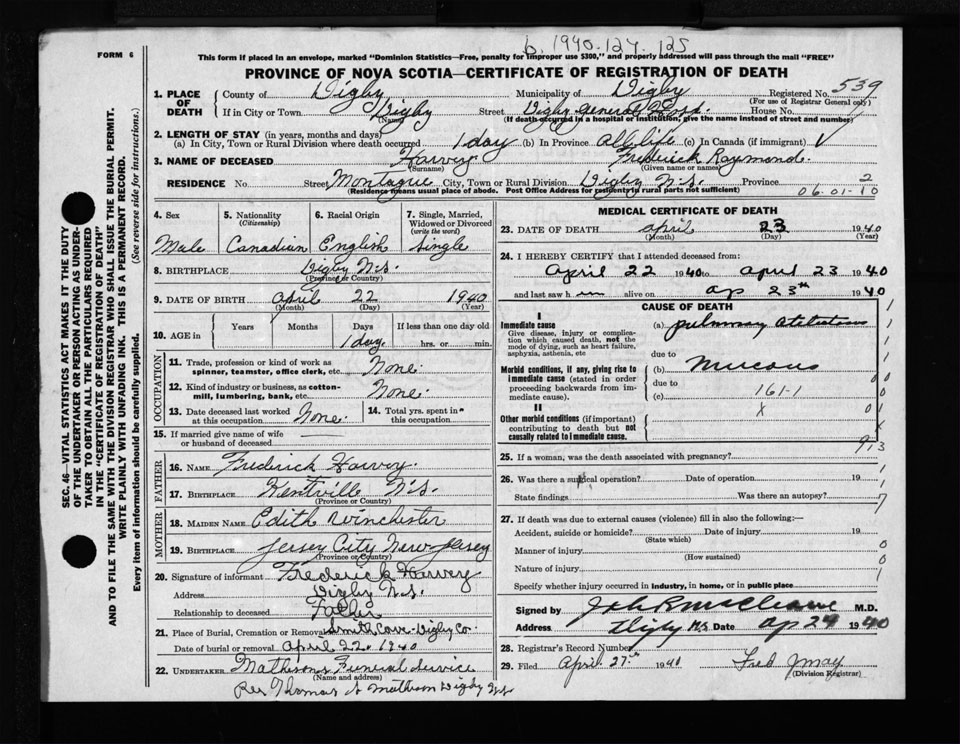 b. 1940-127-125
FORM 6
This form if placed in an envelope, marked "Dominion Statistics—Free, penalty for improper use $300," and properly addressed will pass through the mail "FREE"
PROVINCE OF NOVA SCOTIA—CERTIFICATE OF REGISTRATION OF DEATH
SEC. 46—VITAL STATISTICS ACT MAKES IT THE DUTY
OF THE UNDERTAKER OR PERSON ACTING AS UNDER-
TAKER TO OBTAIN ALL THE PARTICULARS REQUIRED
IN THE "CERTIFICATE OF REGISTRATION OF DEATH"
AND TO FILE THE SAME WITH THE DIVISION REGISTRAR WHO SHALL ISSUE THE BURIAL PERMIT.
WRITE PLAINLY WITH UNFADING INK. THIS IS A PERMANENT RECORD.
Every item of information should be carefully supplied. (See reverse side for instructions.)
1. PLACE OF DEATH County of Digby Municipality of Digby Registered No. 539
(For use of Registrar General only)
If in City or Town Digby Street Digby General Hosp. House No.
(Name) (If death occurred in a hospital or institution, give the name instead of street and number)
2. LENGTH OF STAY (in years, months and days)
(a) In City, Town or Rural Division where death occurred 1 day (b) In Province All life (c) In Canada (if immigrant)
3. NAME OF DECEASED Harvey Frederick Raymond.
(Surname) (Given name or names)
RESIDENCE No. Street Montague City, Town or Rural Division Digby N.S. Province 2
(Residence means usual place of abode. Post Office Address for residents in rural parts not sufficient) 06-01-10
4. Sex Male
5. Nationality (Citizenship) Canadian
6. Racial Origin English
7. Single, Married, Widowed or Divorced (write the word) Single
8. BIRTHPLACE Digby N.S.
(Province or Country)
9. DATE OF BIRTH April 22 1940
(Month) (Day) (Year)
10. AGE in Years Months Days 1 day If less than one day old hrs. or min.
OCCUPATION
11. Trade, profession or kind of work as spinner, teamster, office clerk, etc. None.
12. Kind of industry or business, as cotton-mill, lumbering, bank, etc. None.
13. Date deceased last worked at this occupation None.
14. Total yrs. spent in this occupation
15. If married give name of wife or husband of deceased
FATHER
16. NAME Frederick Harvey.
17. BIRTHPLACE Kentville N.S.
(Province or Country)
MOTHER
18. MAIDEN NAME Edith Winchester
19. BIRTHPLACE Jersey City New Jersey
(Province or Country)
20. Signature of informant Frederick Harvey
Address Digby N.S.
Relationship to deceased Father
21. Place of Burial, Cremation or Removal Smith Cove - Digby Co.
Date of burial or removal April 22. 1940
22. UNDERTAKER Mathesons Funeral Service
(Name and address)
Per Thomas A Matheson Digby N.S.
MEDICAL CERTIFICATE OF DEATH
23. DATE OF DEATH april 23 1940
(Month) (Day) (Year)
24. I HEREBY CERTIFY that I attended deceased from:
april 22 1940 to april 23 1940
and last saw him alive on ap 23th 1940
CAUSE OF DEATH
I
Immediate cause (a) pulmonary
Give disease, injury or complication which caused death, not the mode of dying, such as heart failure, asphyxia, asthenia, etc
due to
Morbid conditions, if any, giving rise to immediate cause (stated in order proceeding backwards from immediate cause). (b) Mucous
due to
(c) 161-1
II
Other morbid conditions (if important) contributing to death but not causally related to immediate cause. X
25. If a woman, was the death associated with pregnancy?
26. Was there a surgical operation? Date of operation 19
State findings Was there an autopsy?
27. If death was due to external causes (violence) fill in also the following:—
Accident, suicide or homicide? Date of injury 19
(State which)
Manner of injury
(How sustained)
Nature of injury
Specify whether injury occurred in industry, in home, or in public place
Signed by M.D.
Address Digby N.S. Date Ap 24 1940
28. Registrar's Record Number
29. Filed April 27th 1940 Fred J May
(Division Registrar)